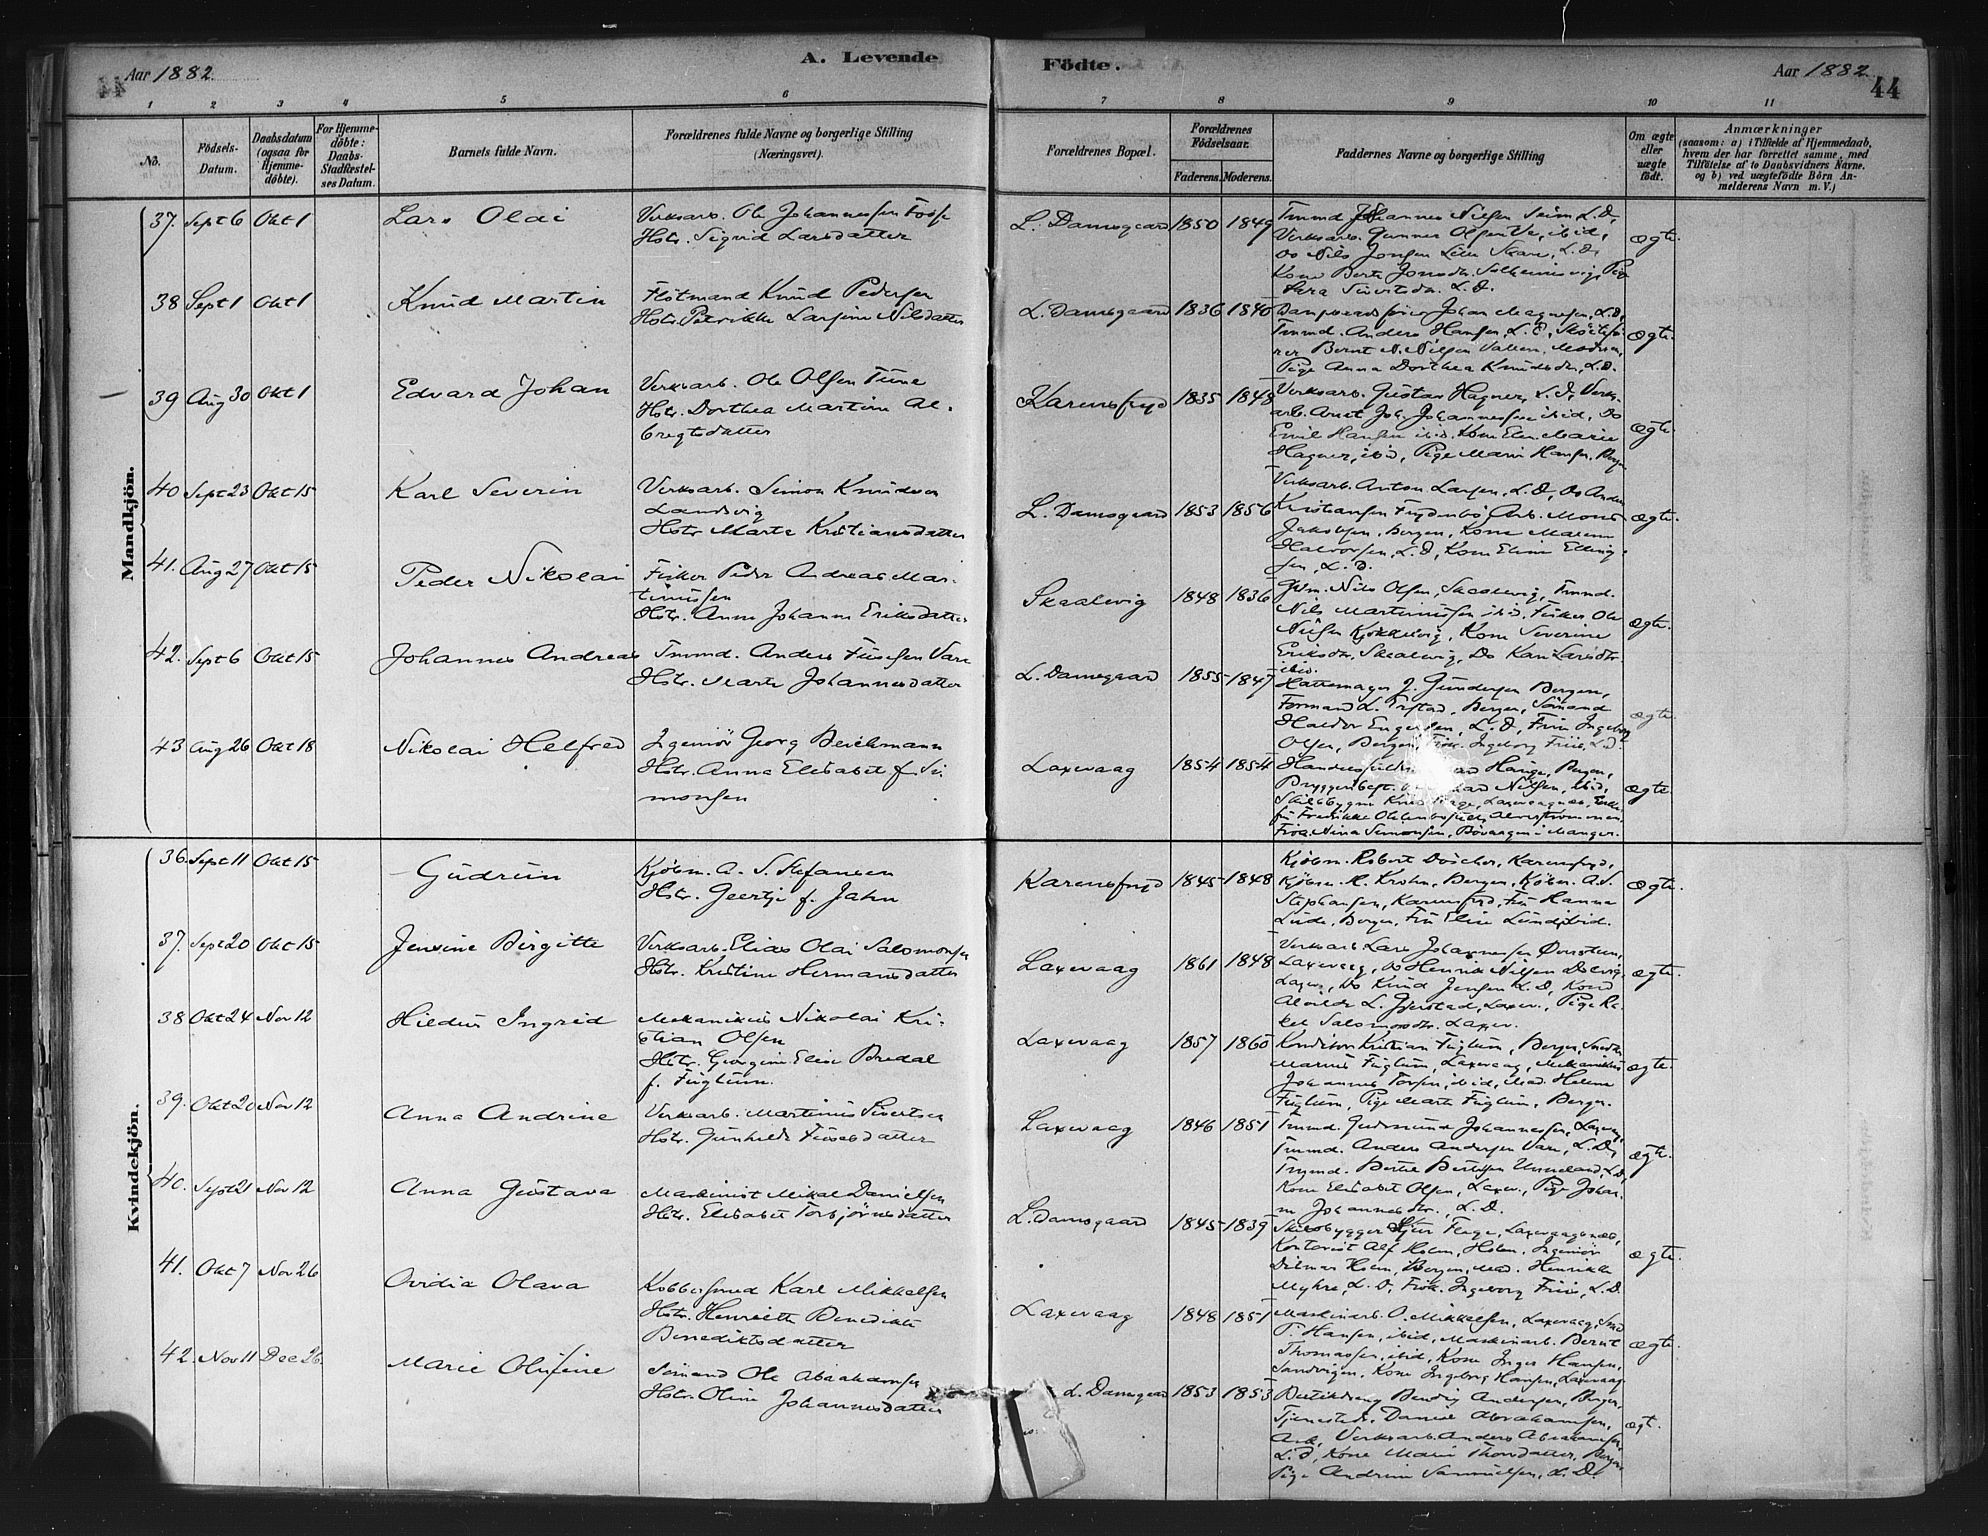 Aar 1882.
A. Levende
Födte.
Aar 1882.
44
1 2 3 4 5 6 7 8 9 10 11
No.
Födsels-Datum.
Daabsdatum (ogsaa for Hjemme-döbte).
For Hjemme-döbte: Daabs-Stadfæstel-ses Datum.
Barnets fulde Navn.
Forældrenes fulde Navne og borgerlige Stilling (Næringsvei).
Forældrenes Bopæl.
Forældrenes Födselsaar.
Faderens. Moderens.
Faddernes Navne og borgerlige Stilling
Om ægte eller uægte födt.
Anmærkninger
(saasom: a) i Tilfælde af Hjemmedaab, hvem der har forrettet samme, med Tilföielse af to Daabsvidners Navne. og b) ved uægtefödte Börn An-melderens Navn m. V.)
Mandkjön.
37. Sept 6 Okt 1 Lars Olai
Verksarb. Ole Johannessen Fosse
Hstr. Sigrid Larsdatter
L. Damsgaard 1850 1849
Trmmd Johannes Nilsen Seim L.D,
Verksarb. Gunner Olsen Ve, ibid,
Lara Sivertsdr. L.D.
ægte.
38 Sept 1 Okt 1 Knud Martin
Flötmand Knud Pedersen
Hstr. Petrikke Larsine Nilsdatter
L. Damsgaard 1836 1840
Johan Magnesen, L.D,
Trmmd. Anders Hansen, L.D,
Pige Anna Dorthea Knudsdr, L.D.
ægte.
39 Aug 30 Okt 1 Edvard Johan
Verksarb. Ole Olsen Tune
Hstr. Dorthea Martine Al-
bregtsdatter
Karensfryd 1835 1848
Verksarb. Gustav Hagner, L.D, Verks-
arb. Joh. Johannessen ibid, Do
Emil Hansen ibid. Kone Elen Marie
Hagner, ibid, Pige Marie Hansen, Bergen
ægte.
40 Sept 23 Okt 15 Karl Severin
Verksarb. Simon Knudsen
Landsvig
Hstr Marte Kristiansdatter
L. Damsgaard 1853 1856
Verksarb. Anton Larsen, L.D, Do Anders
Kristiansen Frydenbö, Arb. Mons
Jakobsen, Bergen, Kone Maren
Halvorsen, L.D, Kone Eline Elling-
sen, L.D.
ægte.
41. Aug 27 Okt 15 Peder Nikolai
Fisker Peder Andreas Mar-
tinussen
Hstr. Anne Johanne Eriksdatter
Skaalevig 1848 1836
Gdm. Nils Olsen, Skaalevig, Trmmd.
Nils Martinussen ibid, Fisker Ole
Nilsen Kjökkelvig, Kone Severine
Eriksdr, Skaalevig, Do Kari Larsdtr.
ibid.
ægte.
42. Sept 6 Okt 15 Johannes Andreas
Trmmd. Anders Andersen Vare
Hstr. Marte Johannesdatter
L. Damsgaard 1855 1847
Hattemager J. Gundersen Bergen,
Formand L. Bergen, Sömand
Halder L.D, Frøken Ingeborg
Olsen, Bergen, Frök. Ingeborg Friis, L.D.
ægte.
43 Aug 26 Okt 18 Nikolai Helfred
Ingeniör Georg Beichmann
Hstr. Anna Elisabet f. Si-
monsen
Laxevaag 1854 1854
Hauge, Bergen,
Nilsen, ibid,
Skibsbygger Laxevaagnæs,
Frök. Nina Simonsen, Bövaagen i Manger.
ægte
Kvindekjön.
36. Sept 11 Okt 15 Gudrun
Kjöbm. A. S. Stefansen
Hstr. Geertje f. Jahn
Karensfryd 1845 1848
Kjöbm. Robert Döscher, Karensfryd,
Kjöbm. H. Krohn, Bergen, Kjöbm. A.S.
Stephansen, Karensfryd, Fru Hanna
Lude, Bergen, Fru Elise Lund, ibid.
ægte.
37. Sept 20 Okt 15 Jensine Birgitte
Verksarb. Elias Olai Salomonsen
Hstr. Kristine Hermansdatter
Laxevaag 1861 1848
Verksarb. Lars Johannessen
Laxevaag, Do Henrik Nilsen
Laxev, Do Knud Jensen L.D, Kone
Alvilde L. Gjerstad, Laxev., Pige Ra-
kel Salomonsdtr. Laxev.
ægte.
38 Okt 24 Nov 12 Hildur Ingrid
Mekanikus Nikolai Kri-
stian Olsen
Hstr. Georgine Elise Bredal
f. Fuglum.
Laxevaag 1857 1860
Konditor Kristian Fuglum, Bergen,
Marius Fuglum, Laxevaag, Mekanikus
Johannes Torsen, ibid, Mad. Helene
Fuglum, Pige Marte Fuglum, Bergen.
ægte.
39. Okt 20 Nov 12 Anna Andrine
Verksarb. Martinus Sivertsen
Hstr. Gunhilde
Laxevaag 1846 1851
Trmmd. Gudmund Johannessen, Laxevaag,
Trmmd. Anders Andersen Vare, L.D,
Kone Elisabet Olsen, Laxev., Pige Johan-
ne Johannesdtr., L.D.
ægte.
40. Sept 21 Nov 12 Anna Gustava
Maskinist Mikal Danielsen
Hstr. Elisabet Torbjörnsdatter
L. Damsgaard 1845 1839
Skibsbygger Flage, Laxevaagnæs,
Kontorist Alf Holm, Holen, Ingeniör
Ditmar Holm, Bergen, Mad. Henrikke
Myhre, L.D, Frök. Ingeborg Friis, L.D.
ægte.
41. Okt 7 Nov 26 Ovidia Olava
Kobbersmed Karl Mikkelsen
Hstr. Henriette Benedikte
Benediktsdatter
Laxevaag 1848 1851
Maskinarb. O. Mikkelsen, Laxevaag, Smed
P. Hansen, ibid, Maskinarb. Bernt
Thomassen, ibid, Kone Inger Hansen,
Sandvigen, Kone Ingeborg Hansen, Laxevaag
ægte.
42. Nov 11 Dec 26. Marie Olufine
Sömand Ole Abrahamsen
Hstr. Oline Johannesdatter
L. Damsgaard 1853 1853
Butikdreng Bendig Andersen, Bergen,
Daniel Abrahamsen,
Ask, Verksarb. Anders Abrahamsen,
L.D, Kone Mari Thorsdatter, Bergen,
Pige Andrine Samuelsen, L.D.
ægt.